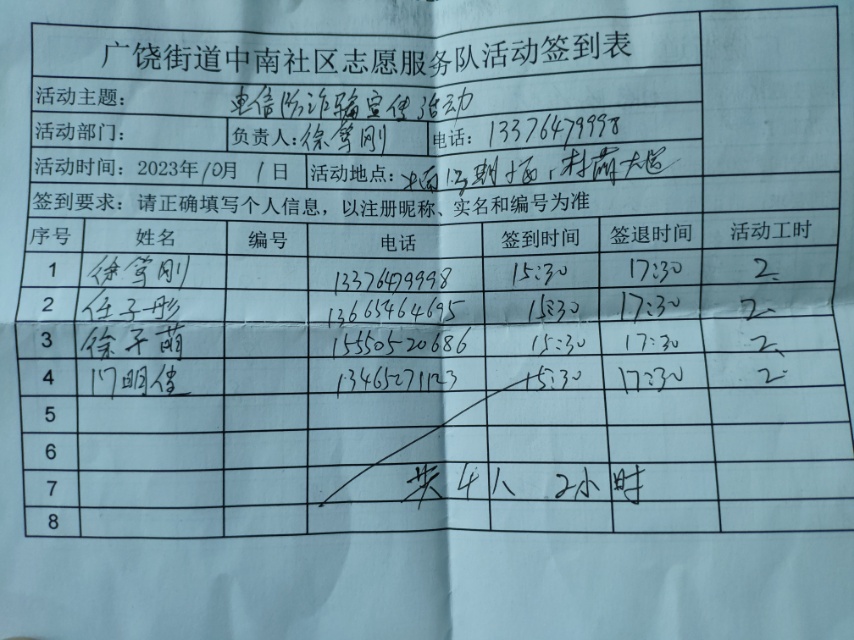 广饶街道中南社区志愿服务队活动签到表
活动主题： 电信防诈骗宣传活动
活动部门： 负责人：徐笃刚 电话：13376479998
活动时间：2023年10月1日 活动地点：
签到要求：请正确填写个人信息，以注册昵称、实名和编号为准
序号 姓名 编号 电话 签到时间 签退时间 活动工时
1 徐笃刚 13376479998 15:30 17:30 2.
2 任子彤 13665464695 15:30 17:30 2.
3 徐子萌 15550520686 15:30 17:30 2.
4 门明佳 13465271123 15:30 17:30 2.
5
6
7 共4人 2小时
8